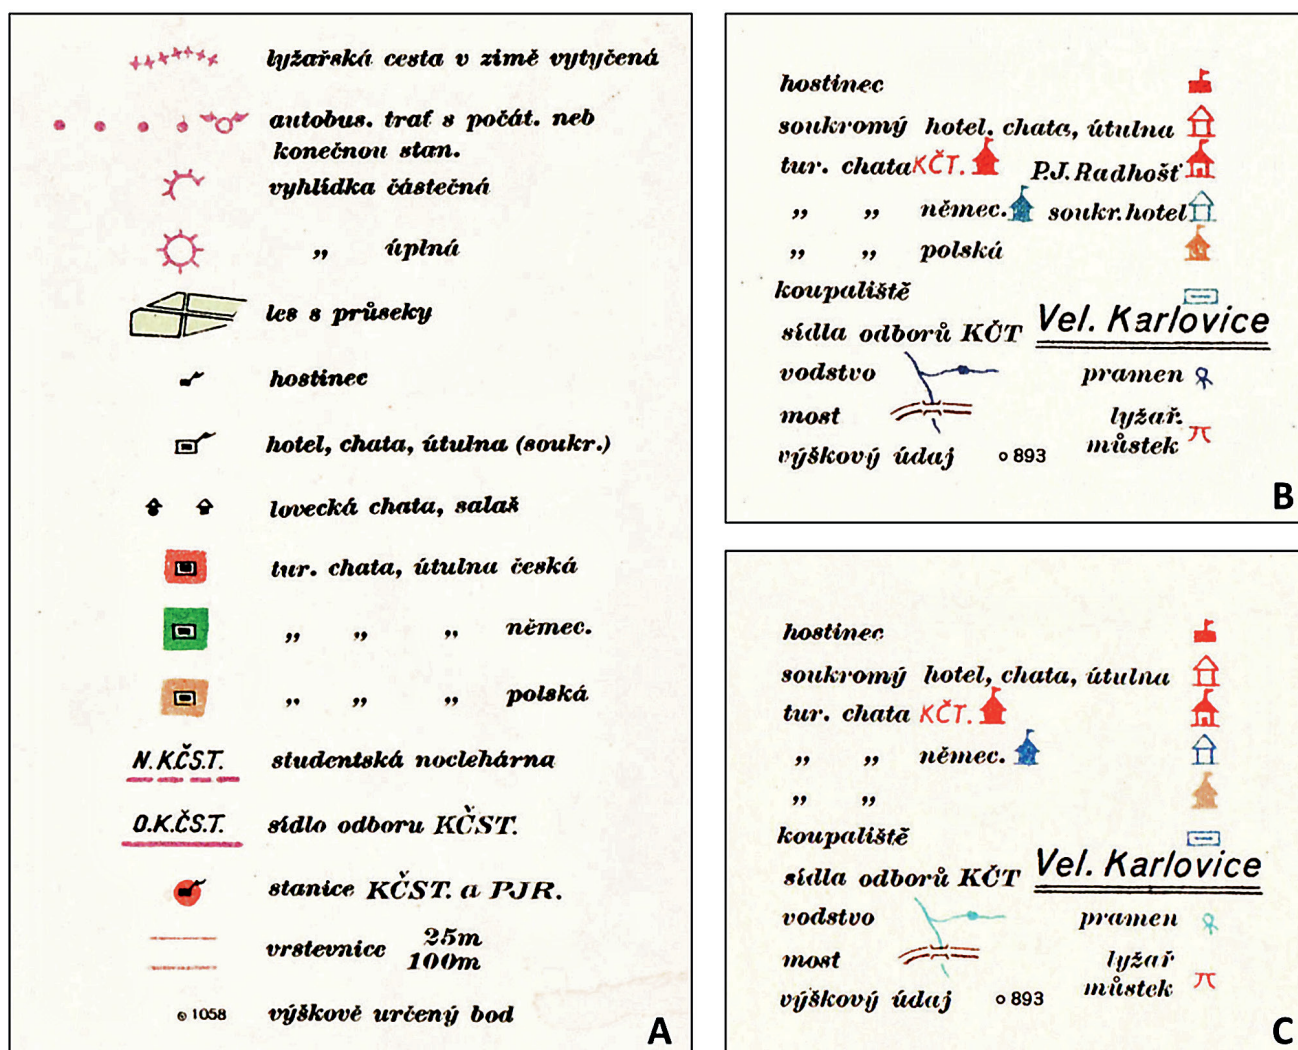 lyžařská cesta v zimě vytyčená
autobus. trať s počát. neb
konečnou stan.
vyhlídka částečná
„ úplná
les s průseky
hostinec
hotel, chata, útulna (soukr.)
lovecká chata, salaš
tur. chata, útulna česká
„ „ „ němec.
„ „ „ polská
N.K.Č.S.T. studentská noclehárna
O.K.Č.S.T. sídlo odboru KČST.
stanice KČST. a PJR.
vrstevnice 25m
100m
1058 výškově určený bod
A
hostinec
soukromý hotel. chata, útulna
tur. chata KČT. P.J.Radhošť
„ „ němec. soukr.hotel
„ „ polská
koupaliště
sídla odborů KČT Vel. Karlovice
vodstvo pramen
most lyžař.
můstek
výškový údaj 893
B
hostinec
soukromý hotel, chata, útulna
tur. chata KČT.
„ „ němec.
„ „
koupaliště
sídla odborů KČT Vel. Karlovice
vodstvo pramen
most lyžař
můstek
výškový údaj 893
C